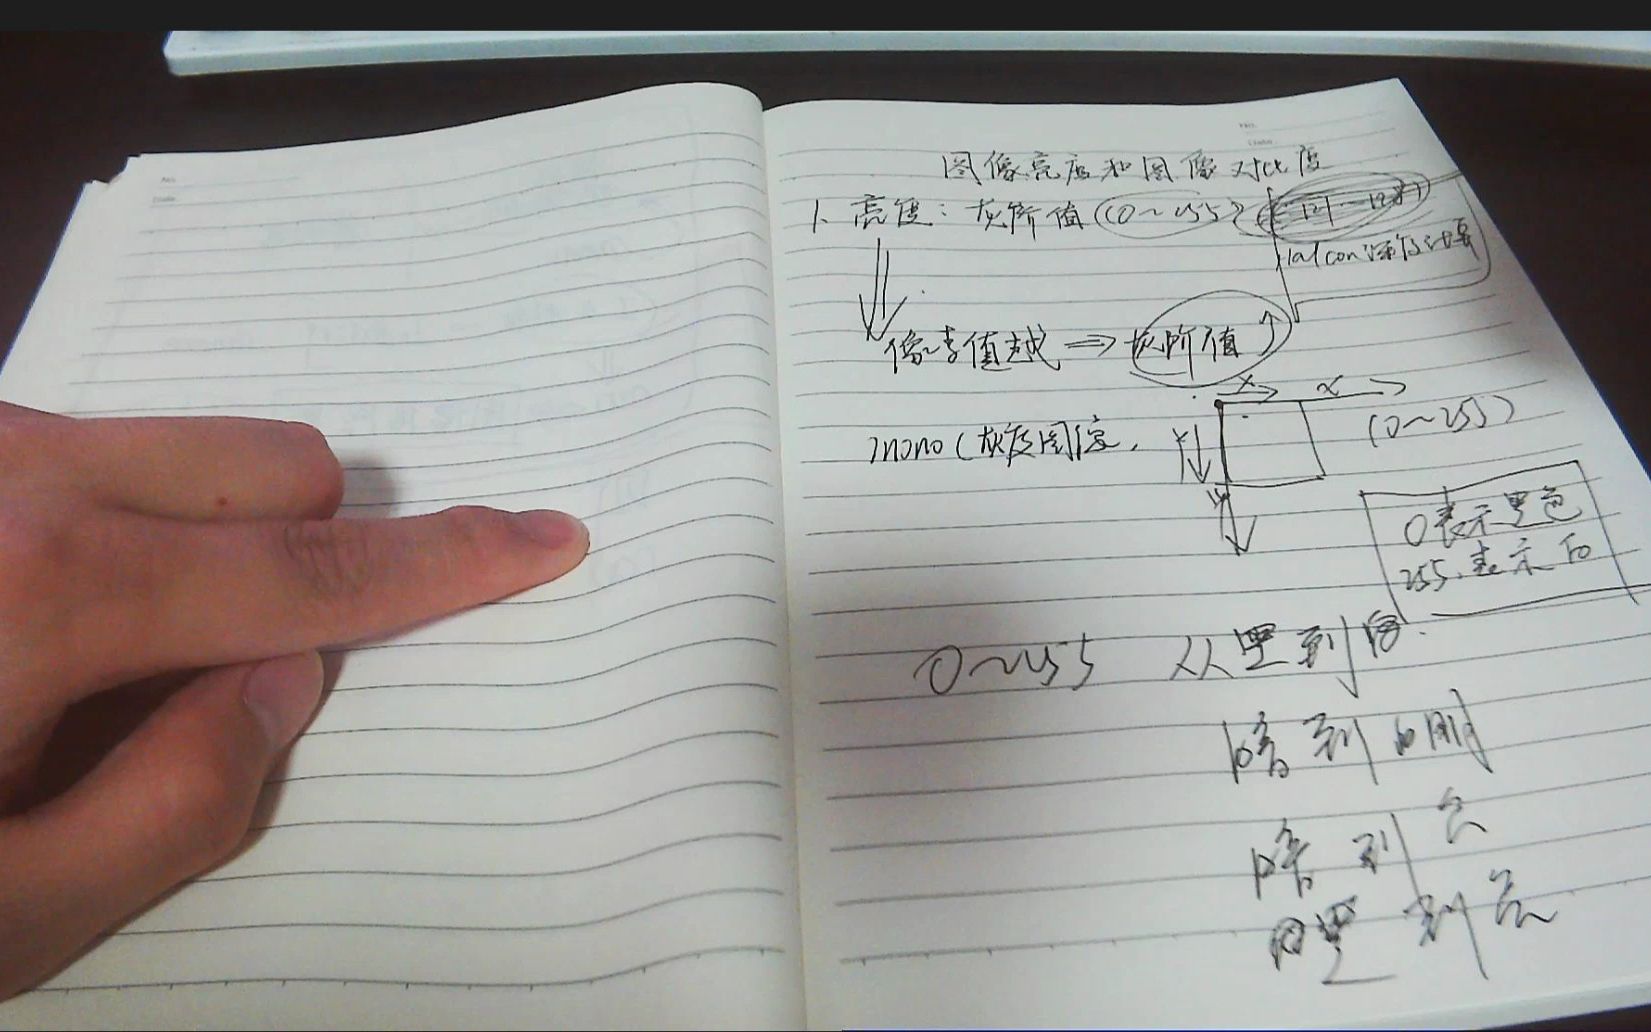 No.
Date
No.
Date
图像亮度和图像对比度
1、亮度：灰阶值（0~255）
像素值越 ⇒ 灰阶值↑
x → x →
mono（灰度图像，
y↓
（0~255）
y↓
0表示黑色
255.表示白
0~255 从黑到白
暗到明
暗到亮
黑到亮